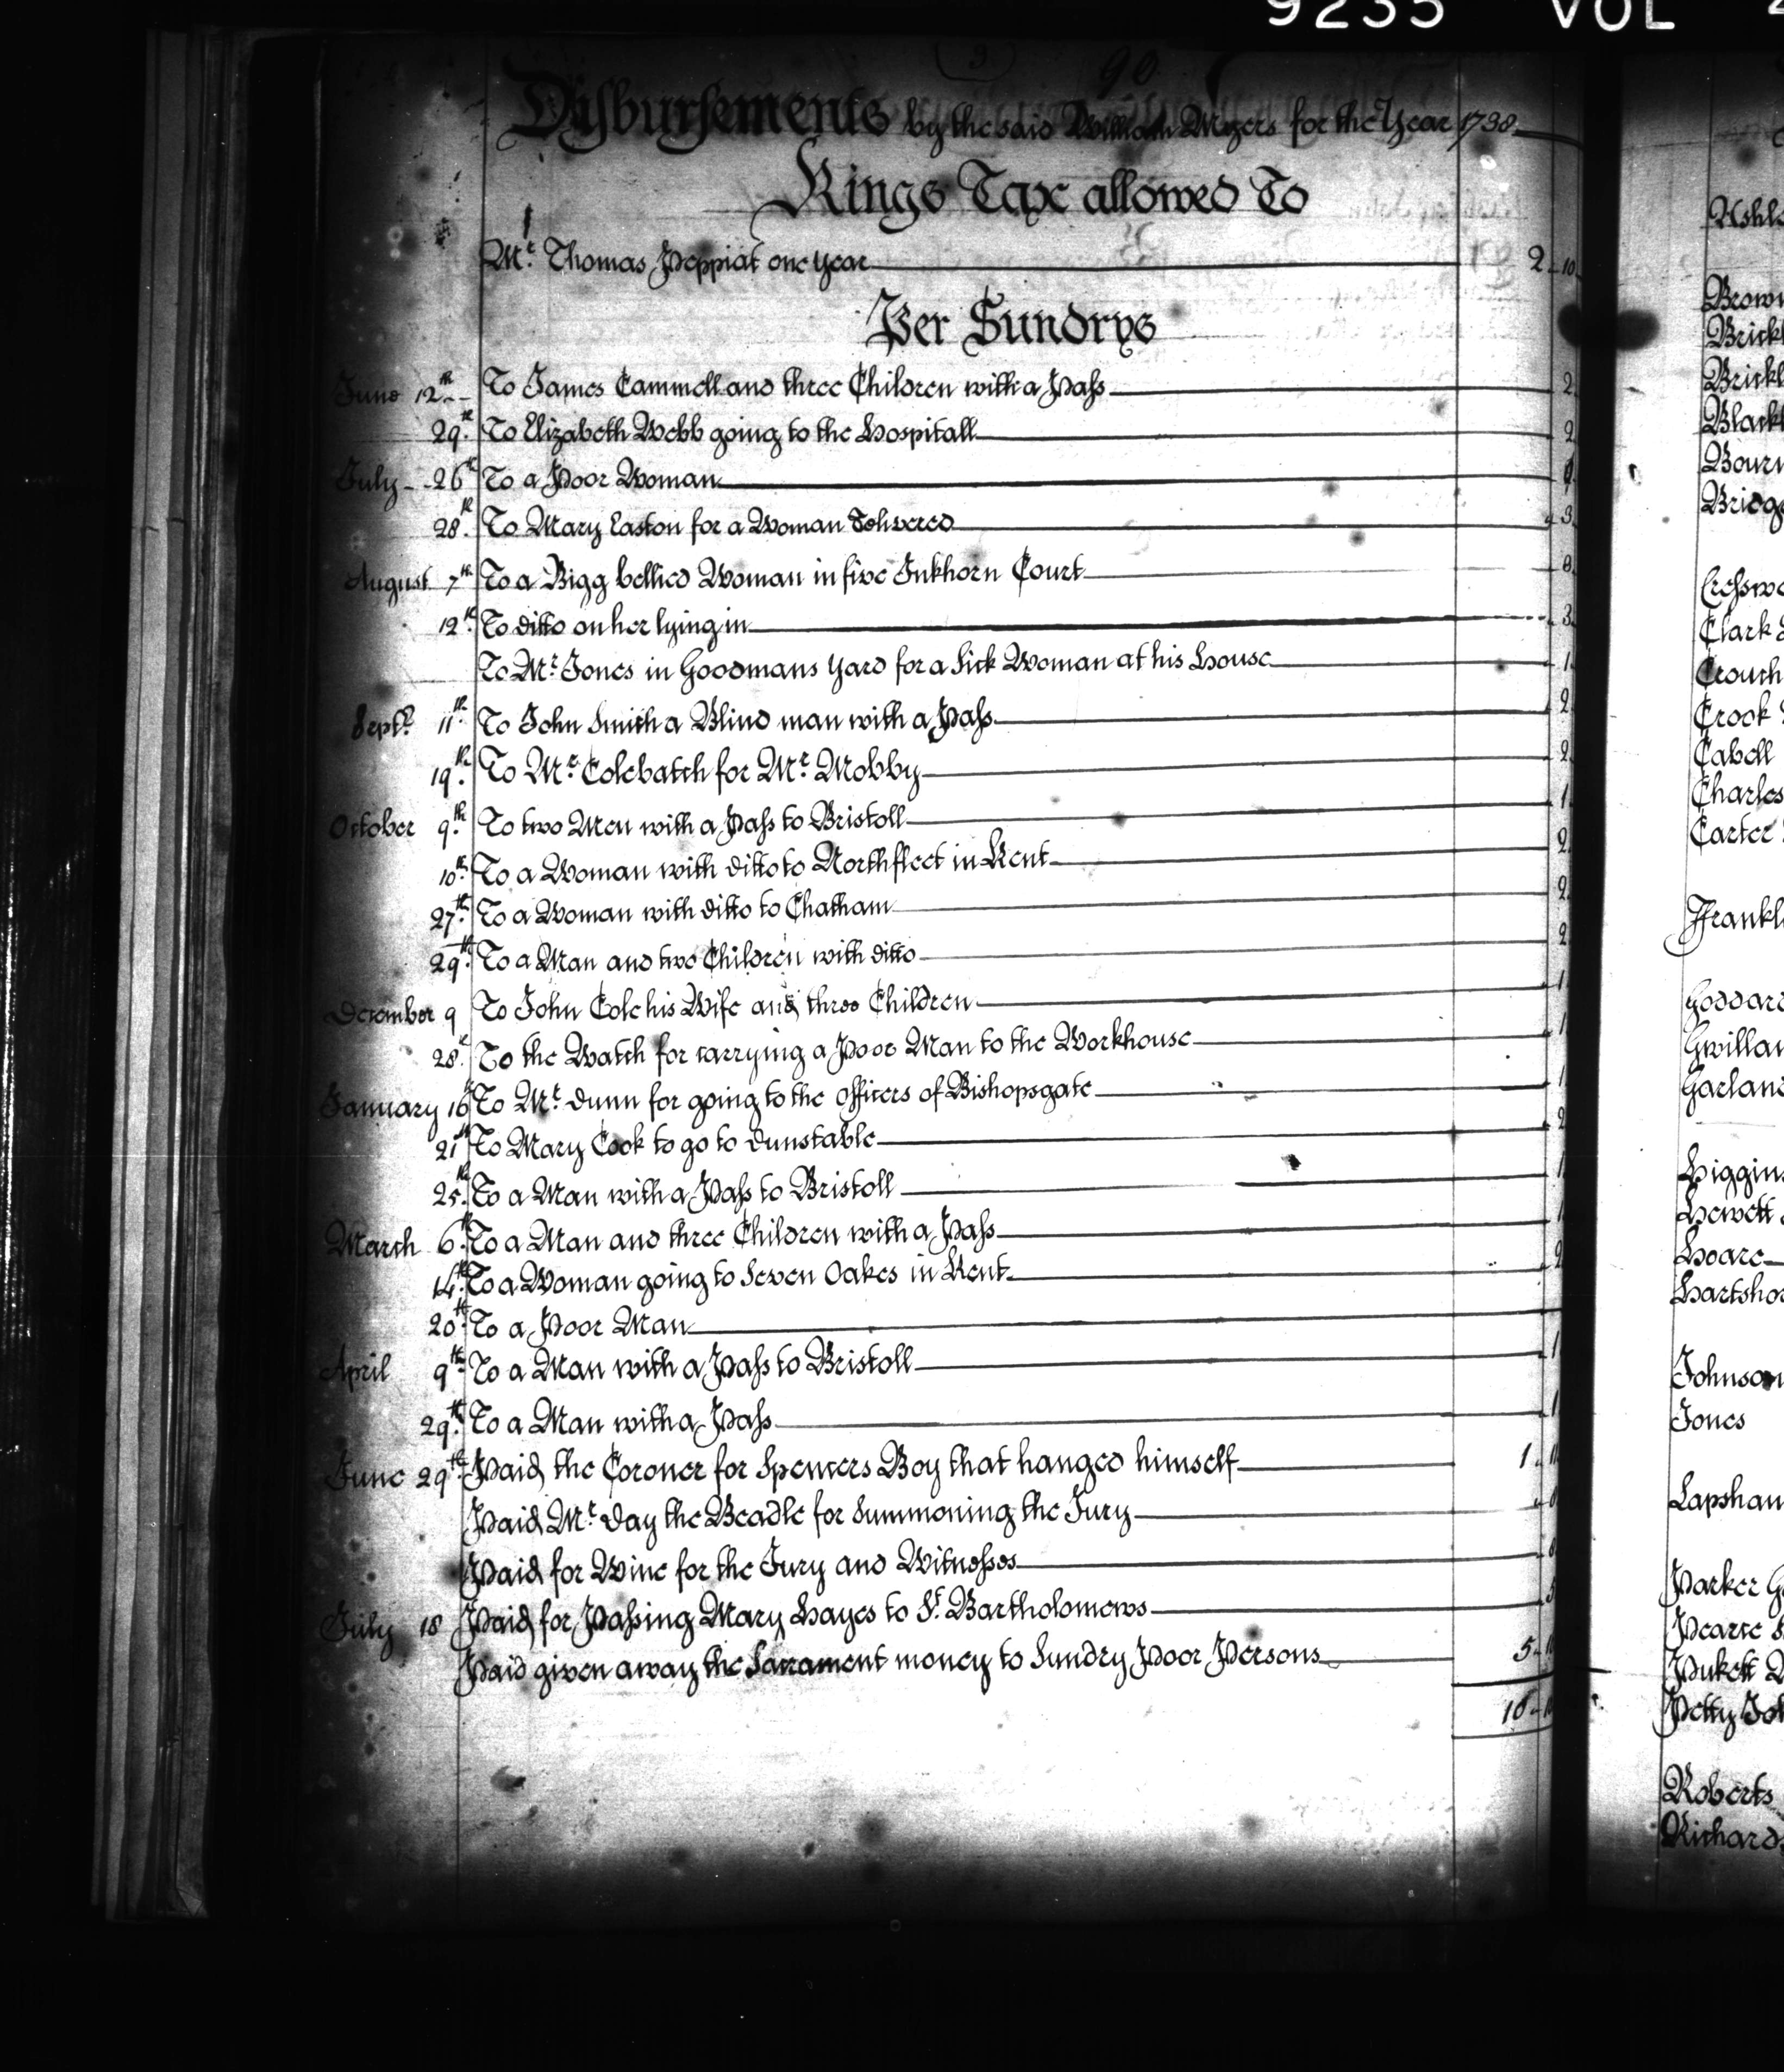 9235 VOL
90
Disbursements by the said William Myers for the Year 1738
Kings Tax allowed To
Mr. Thomas Peppiat one year 2 - 10
Per Sundrys
June 12th To James Cammell and three Children with a Pass 2
29th To Elizabeth Webb going to the Hospitall 2
July 26th To a Poor Woman
28th To Mary Easton for a Woman Delivered 3
August 7th To a Bigg bellied Woman in five Inkhorn Court
12th To ditto on her lying in 3
To Mr. Jones in Goodmans Yard for a Sick Woman at his House 1
Septr. 11th To John Smith a Blind man with a Pass 2
19th To Mr. Colebatch for Mr. Mobby 2
October 9th To two Men with a Pass to Bristoll 1
10th To a Woman with ditto to Northfleet in Kent 2
27th To a Woman with ditto to Chatham 2
29th To a Man and two Children with ditto 2
December 9 To John Cole his Wife and three Children 1
28th To the Watch for carrying a Poor Man to the Workhouse 1
January 16th To Mr. Dunn for going to the Officers of Bishopsgate 1
21th To Mary Cook to go to Dunstable 2
25th To a Man with a Pass to Bristoll 1
March 6th To a Man and three Children with a Pass 1
14th To a Woman going to Seven Oakes in Kent 2
20th To a Poor Man
April 9th To a Man with a Pass to Bristoll 1
29th To a Man with a Pass 1
June 29th Paid the Coroner for Spencers Boy that hanged himself 1
Paid Mr. Day the Beadle for Summoning the Jury
Paid for Wine for the Jury and Witnesses
July 18 Paid for Passing Mary Hayes to St. Bartholomews
Paid given away the Sacrament money to Sundry Poor Persons 5
Brown
Clark
Crouch
Crook
Cabell
Charles
Carter
Goddard
Hewett
Hoare
Johnson
Jones
Parker
Roberts